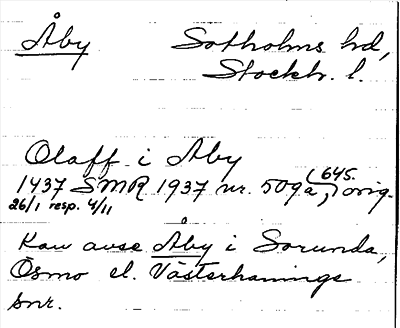 Åby Sotholms hd,
Stockh. l.
Olaff i Åby
(645.
1437 SMR 1937 nr. 509a,) orig.
26/1 resp. 4/11
Kan avse Åby i Sorunda,
Ösmo el. Västerhanings
snr.